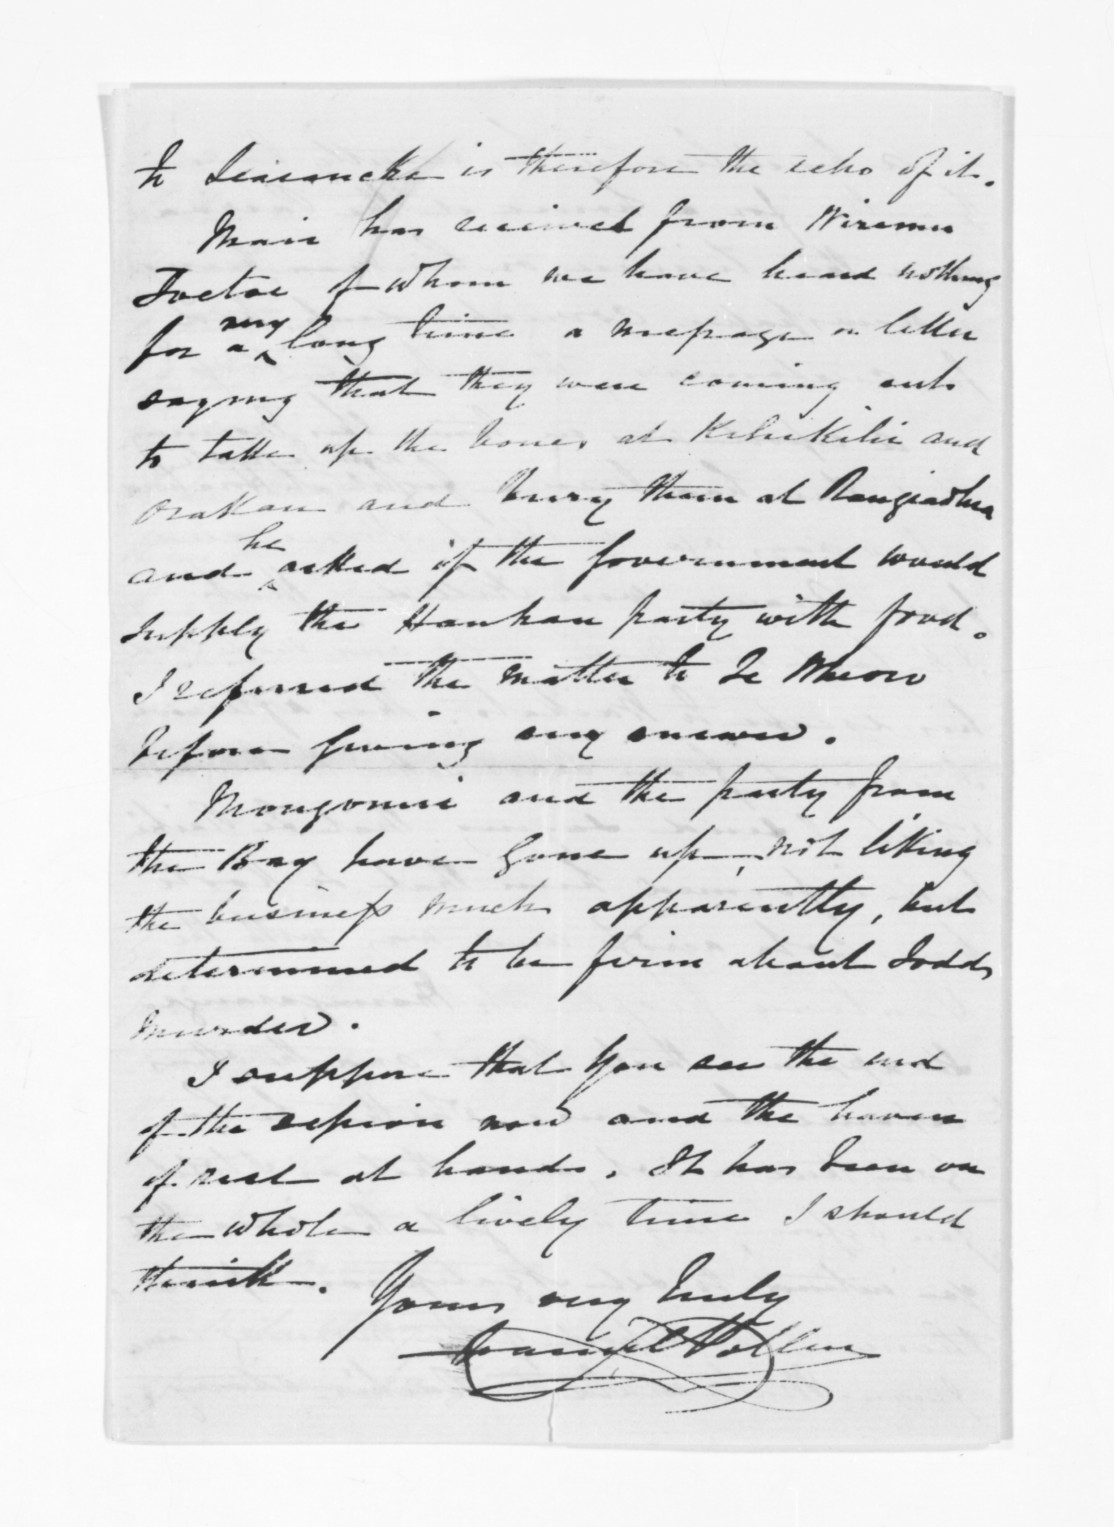 to is therefore the echo of it.
Mair has received from Wiremu
Toetoe of whom we have heard nothing
for a very long time a message or letter
saying that they were coming out
to take up the bones at Kihikihi and
Orakau and bury them at Rangiaohia
and he asked if the Government would
supply the Hauhau party with food.
I referred the matter to Te Wheoro
before giving any answer.
and the party from
the Bay have gone up, not liking
the business much apparently, but
determined to be firm about Todds
murder.
I suppose that you see the end
of the session now and the haven
of rest at hand. It has been on
the whole a lively time I should
think.
Yours very truly
Daniel Pollen